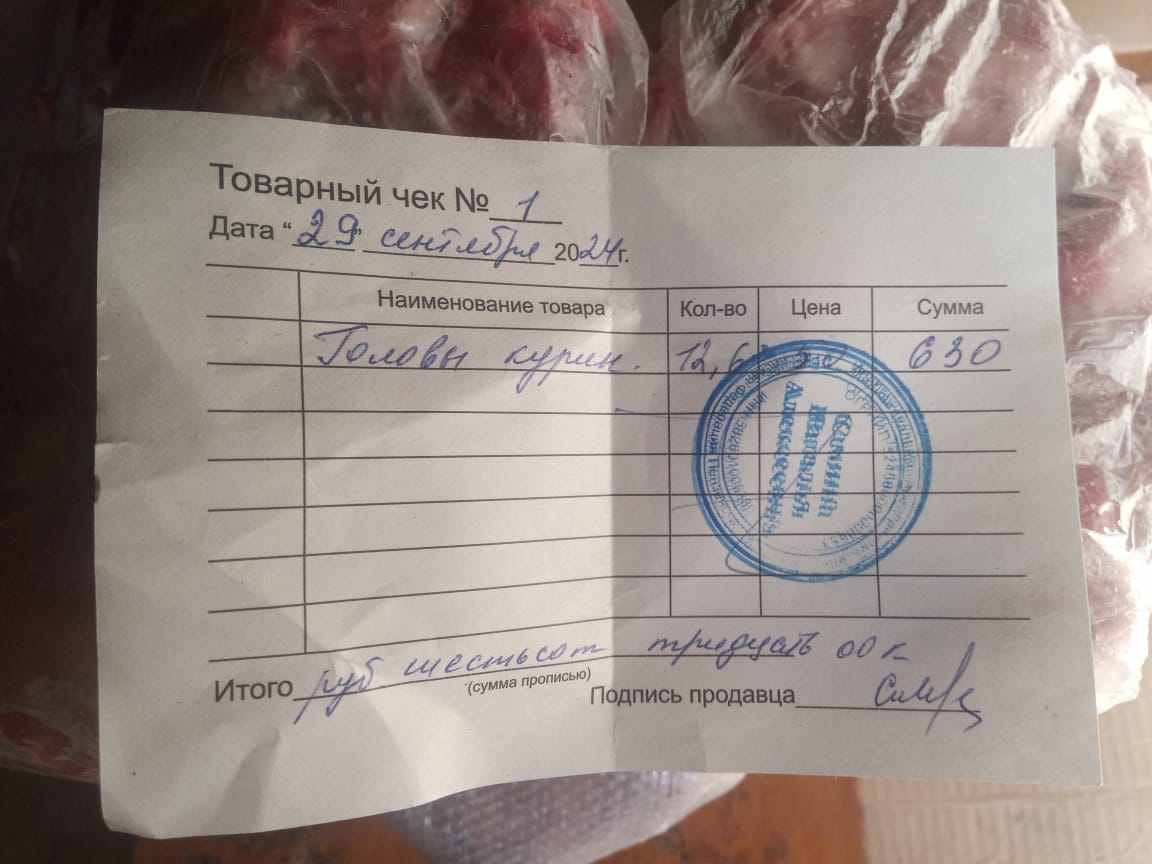 Товарный чек № 1
Дата “29” сентября 2024г.
Наименование товара Кол-во Цена Сумма
Головы курин. 12,6 630
Итого руб шестьсот тридцать 00 к
(сумма прописью)
Подпись продавца